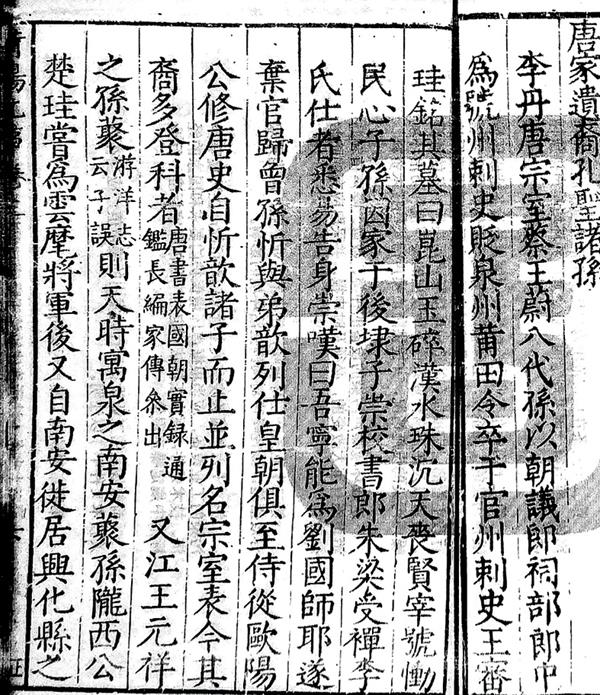 唐家遺裔孔聖諸孫
李丹唐宗室蔡王蔚八代孫以朝議郎祠部郎中
為虢州刺史貶泉州莆田令卒于官州刺史王審
珪銘其墓曰崑山玉碎漢水珠沉天喪賢宰號慟
民心子孫因家于後埭子崇校書郎朱梁受禪李
氏仕者悉易告身崇嘆曰吾寧能為劉國師耶遂
棄官歸曾孫忻與弟歆列仕皇朝俱至侍從歐陽
公修唐史自忻歆諸子而止並列名宗室表今其
裔多登科者唐書表國朝實録通鑑長編家傳叅出又江王元祥
之孫蕤游洋志云子誤則天時寓泉之南安蕤孫隴西公
楚珪嘗為雲麾將軍後又自南安徙居興化縣之